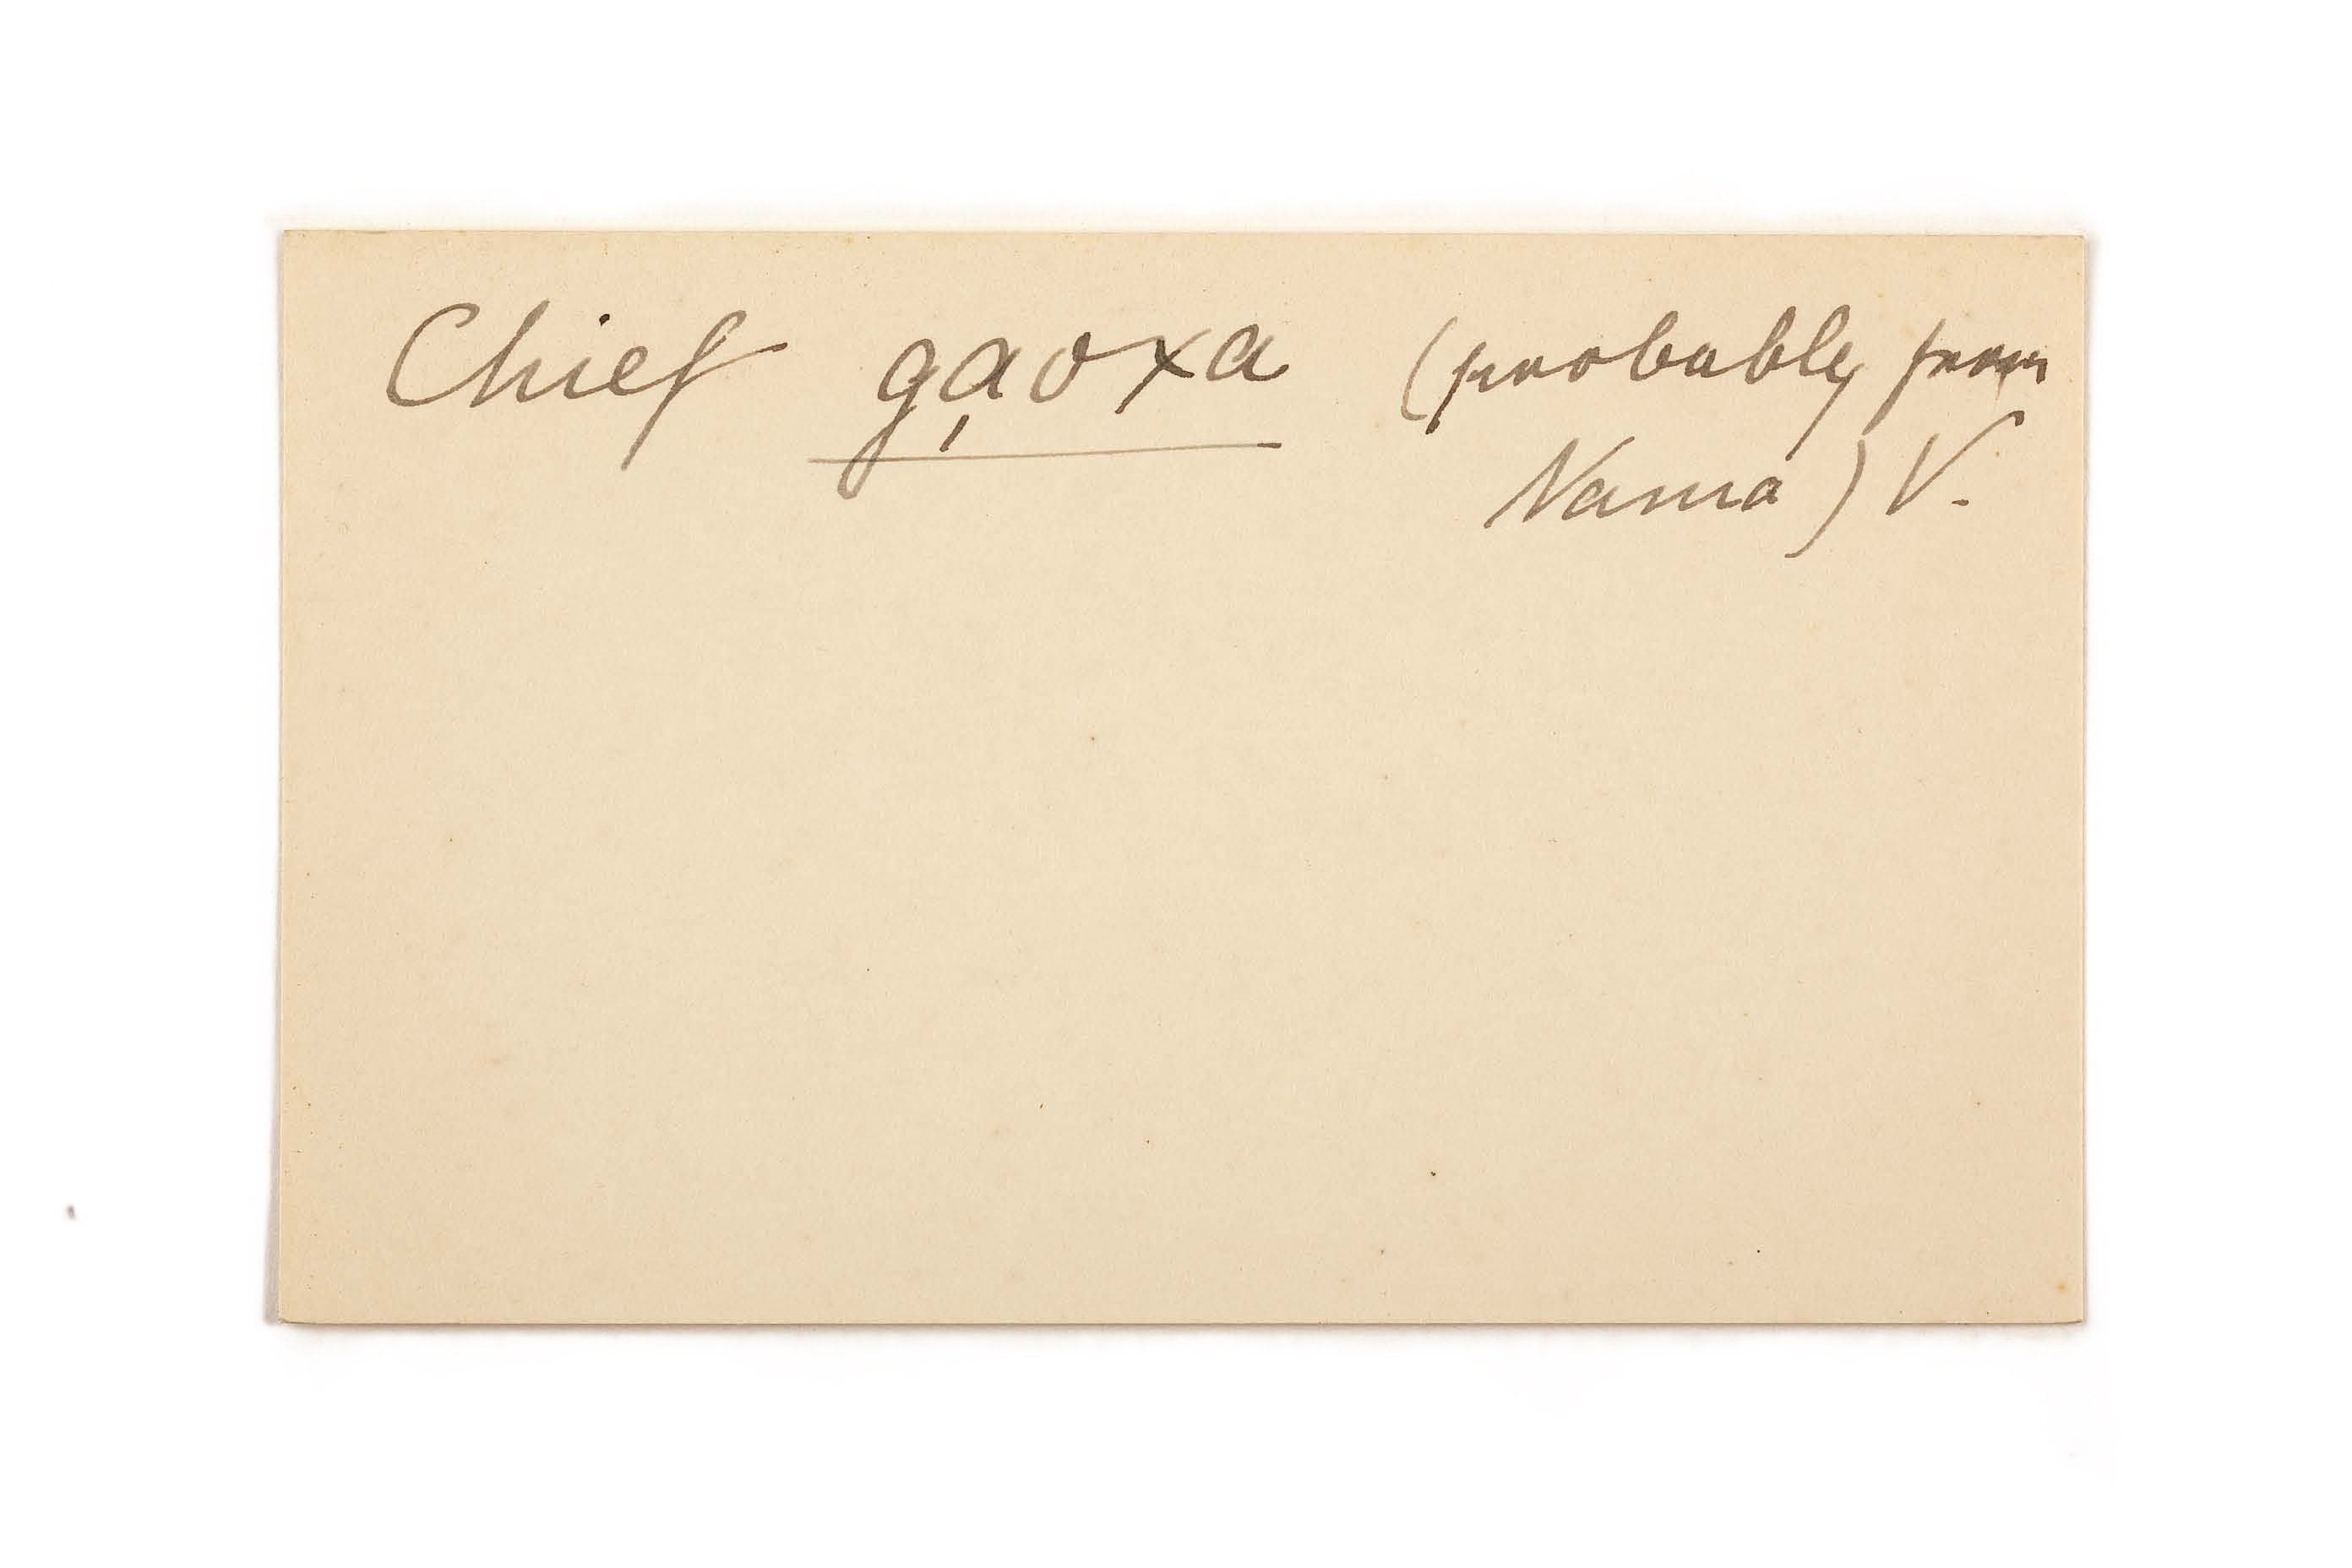 Chief g̗a̗oxa (probably from
Nama) V.